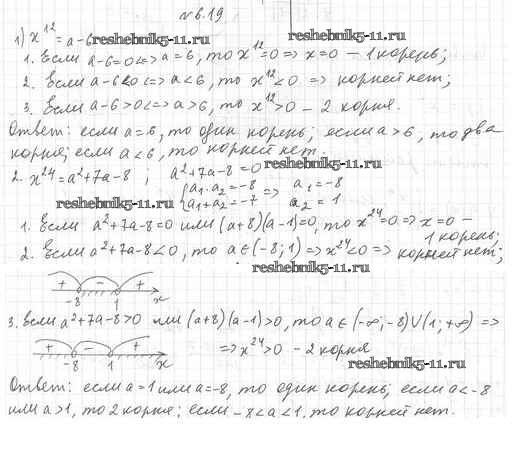 №6.19
1) x¹² = a-6 reshebnik5-11.ru reshebnik5-11.ru
1. Если a-6=0 <=> a=6, то x¹²=0 => x=0 – 1 корень;
2. Если a-6<0 <=> a<6, то x¹²<0 => корней нет;
3. Если a-6>0 <=> a>6, то x¹²>0 – 2 корня.
Ответ: если a=6, то один корень; если a>6, то два
корня; если a<6, то корней нет. reshebnik5-11.ru
2. x²⁴=a²+7a-8 ; a²+7a-8=0
{a₁·a₂=-8 => a₁=-8
reshebnik5-11.ru {a₁+a₂=-7 a₂=1
1. Если a²+7a-8=0 или (a+8)(a-1)=0, то x²⁴=0 => x=0 –
1 корень;
2. Если a²+7a-8<0, то a∈(-8;1) => x²⁴<0 => корней нет;
reshebnik5-11.ru
+ - +
-8 1 x
3. Если a²+7a-8>0 или (a+8)(a-1)>0, то a∈(-∞;-8)∪(1;+∞) =>
+ - + => x²⁴>0 – 2 корня
-8 1 x reshebnik5-11.ru
Ответ: если a=1 или a=-8, то один корень; если a<-8
или a>1, то 2 корня; если -8<a<1, то корней нет.